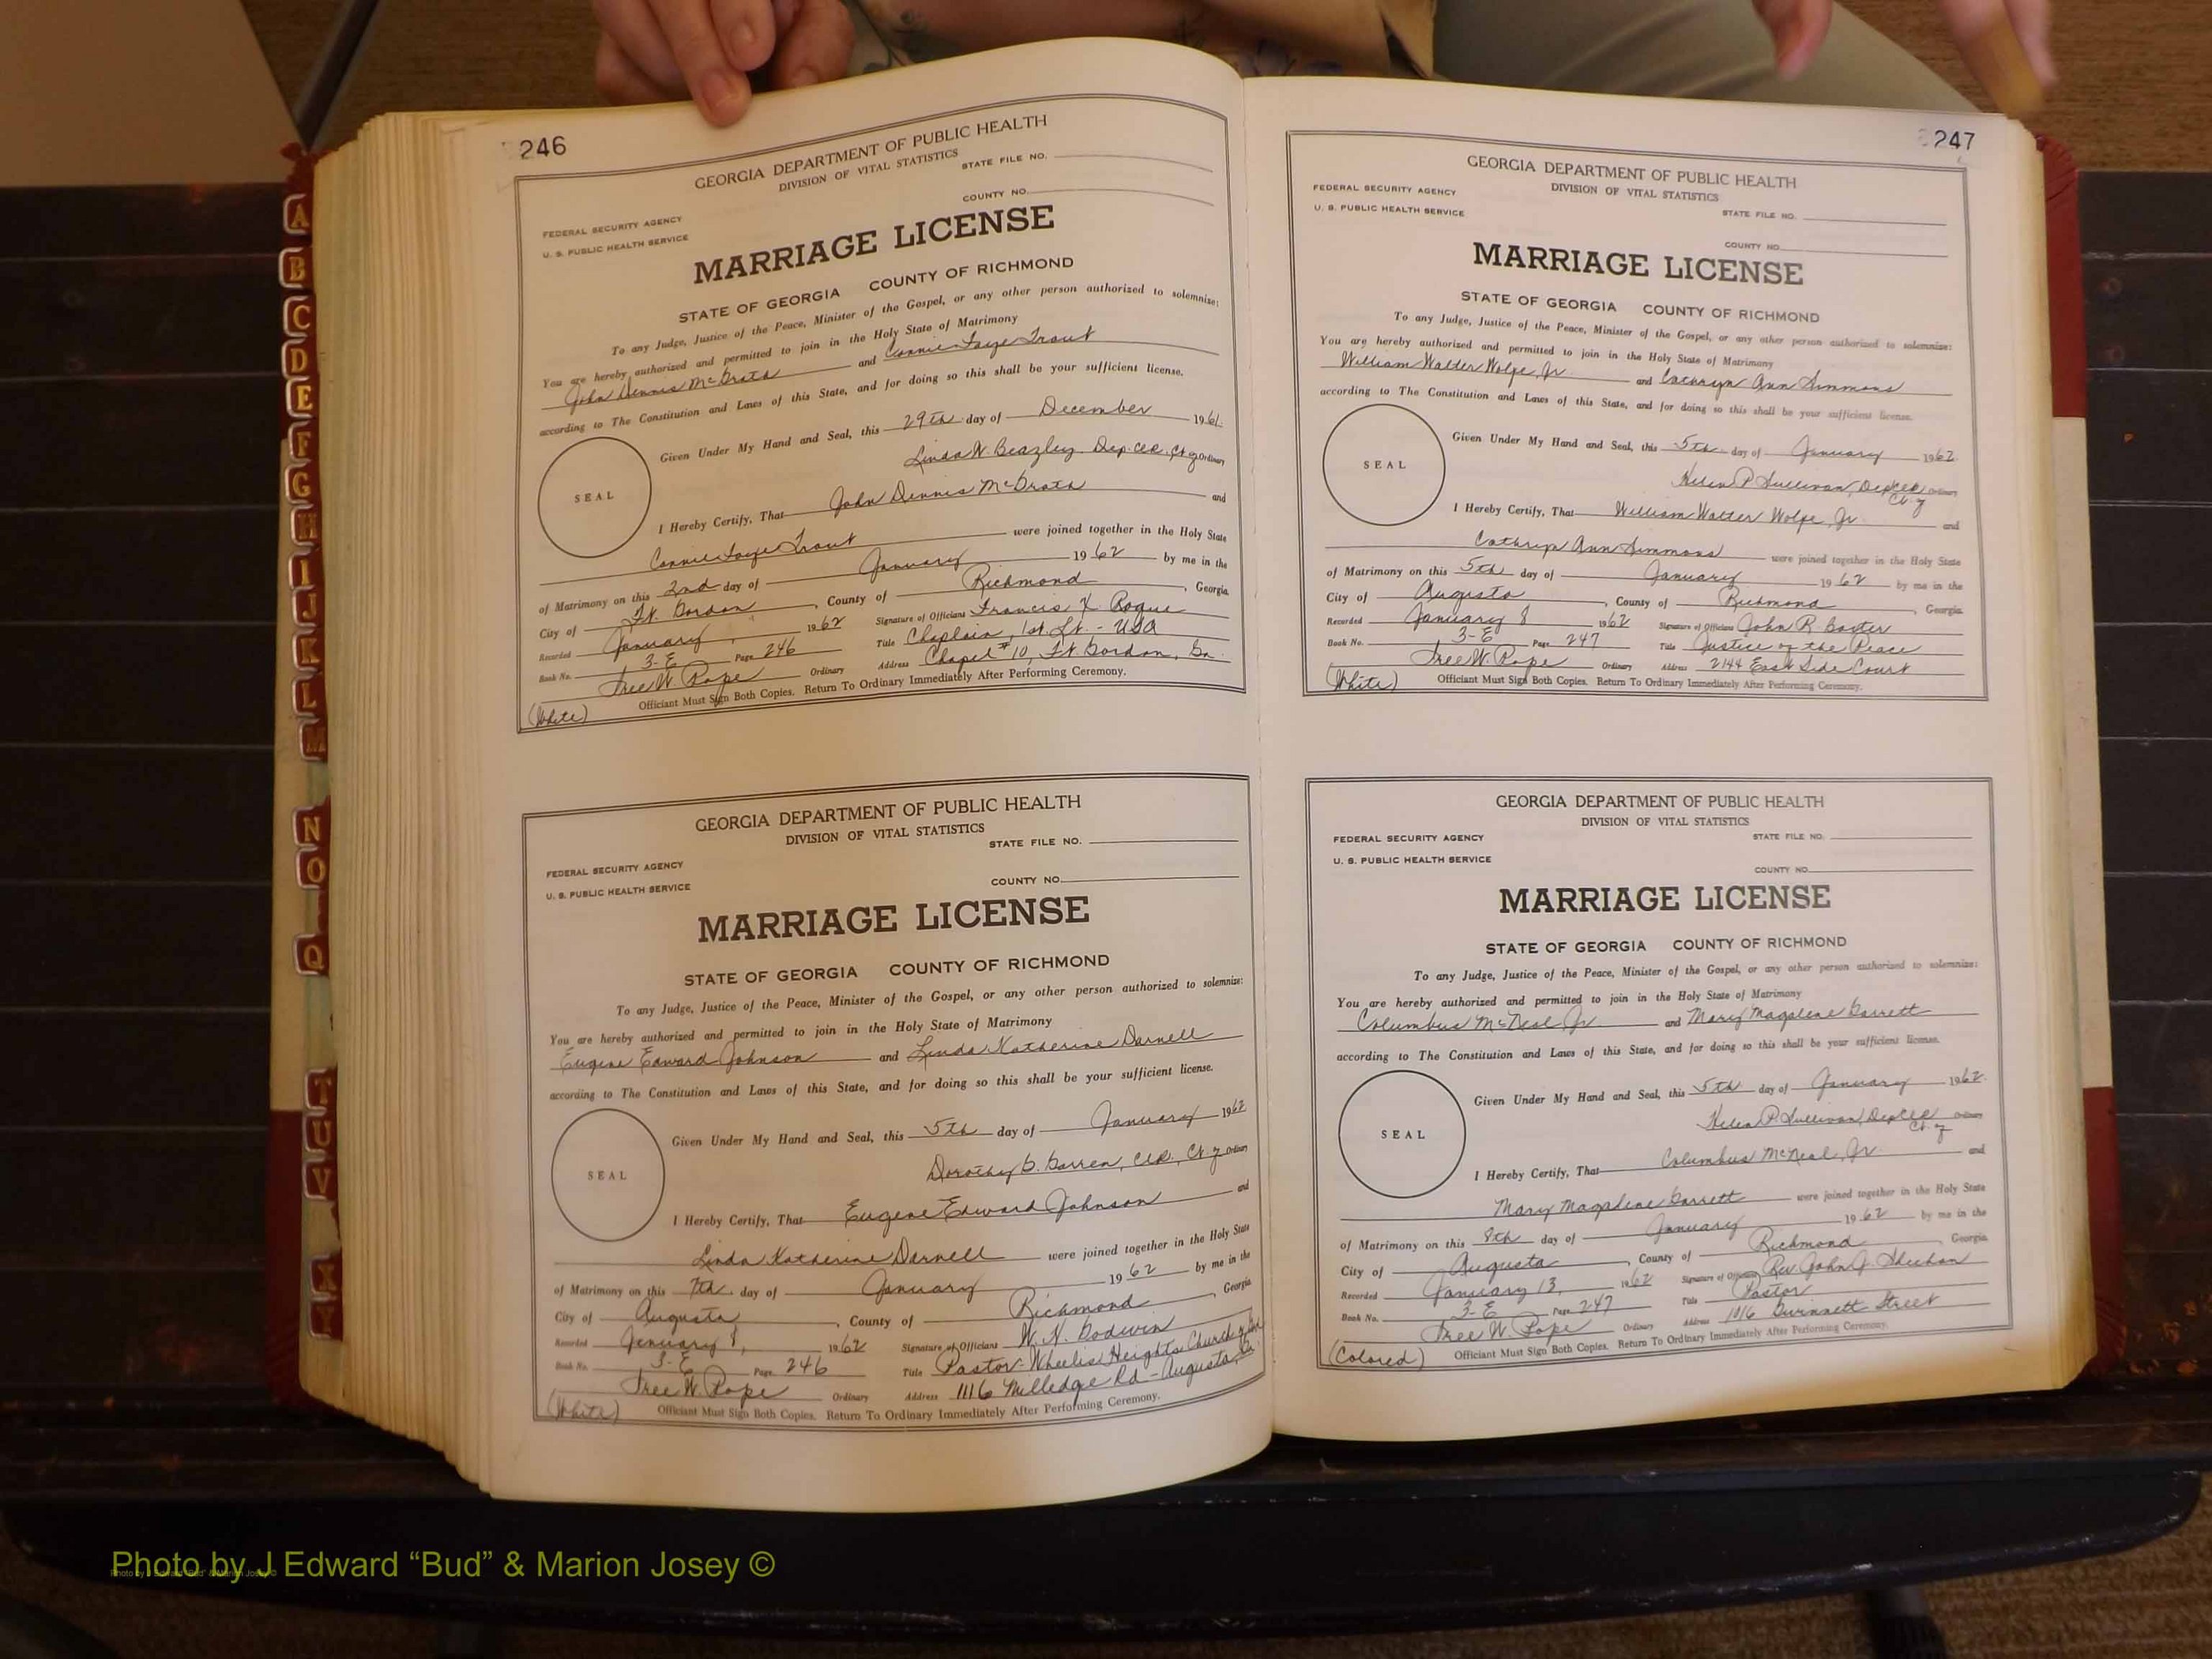 246
GEORGIA DEPARTMENT OF PUBLIC HEALTH
DIVISION OF VITAL STATISTICS
STATE FILE NO.
COUNTY NO.
FEDERAL SECURITY AGENCY
U. S. PUBLIC HEALTH SERVICE
MARRIAGE LICENSE
STATE OF GEORGIA COUNTY OF RICHMOND
To any Judge, Justice of the Peace, Minister of the Gospel, or any other person authorized to solemnize:
You are hereby authorized and permitted to join in the Holy State of Matrimony
John Dennis McGrath and Connie Faye Trout
according to The Constitution and Laws of this State, and for doing so this shall be your sufficient license.
Given Under My Hand and Seal, this 29th day of December 1961.
Linda W. Beazley Dep. Clk. Ct. of Ordinary
SEAL
I Hereby Certify, That John Dennis McGrath and
Connie Faye Trout were joined together in the Holy State
of Matrimony on this 2nd day of January 1962 by me in the
City of Ft. Gordon, County of Richmond, Georgia.
Recorded January 1962 Signature of Officiant Francis X. Rogue
Book No. 3-E Page 246 Title Chaplain, 1st. Lt. - USA
Free W. Pope Ordinary Address Chapel #10, Ft. Gordon, Ga.
Officiant Must Sign Both Copies. Return To Ordinary Immediately After Performing Ceremony.
(White)
GEORGIA DEPARTMENT OF PUBLIC HEALTH
DIVISION OF VITAL STATISTICS
STATE FILE NO.
FEDERAL SECURITY AGENCY
COUNTY NO.
U. S. PUBLIC HEALTH SERVICE
MARRIAGE LICENSE
STATE OF GEORGIA COUNTY OF RICHMOND
To any Judge, Justice of the Peace, Minister of the Gospel, or any other person authorized to solemnize:
You are hereby authorized and permitted to join in the Holy State of Matrimony
Eugene Edward Johnson and Linda Katherine Darnell
according to The Constitution and Laws of this State, and for doing so this shall be your sufficient license.
Given Under My Hand and Seal, this 5th day of January 1962
Dorothy B. Garren, Clk., Ct. of Ordinary
SEAL
I Hereby Certify, That Eugene Edward Johnson and
Linda Katherine Darnell were joined together in the Holy State
of Matrimony on this 7th day of January 1962 by me in the
City of Augusta, County of Richmond, Georgia
Recorded January 8, 1962 Signature of Officiant W. N. Godwin
Book No. 3-E Page 246 Title Pastor-Wheeless Heights Church of God
Free W. Pope Ordinary Address 1116 Milledge Rd - Augusta, Ga
(White) Officiant Must Sign Both Copies. Return To Ordinary Immediately After Performing Ceremony.
247
GEORGIA DEPARTMENT OF PUBLIC HEALTH
FEDERAL SECURITY AGENCY DIVISION OF VITAL STATISTICS
U. S. PUBLIC HEALTH SERVICE STATE FILE NO.
COUNTY NO.
MARRIAGE LICENSE
STATE OF GEORGIA COUNTY OF RICHMOND
To any Judge, Justice of the Peace, Minister of the Gospel, or any other person authorized to solemnize:
You are hereby authorized and permitted to join in the Holy State of Matrimony
William Walter Wolpe, Jr. and Cathryn Ann Simmons
according to The Constitution and Laws of this State, and for doing so this shall be your sufficient license.
Given Under My Hand and Seal, this 5th day of January 1962
Helen P. Sullivan, Dep Clk Ct. of Ordinary
SEAL
I Hereby Certify, That William Walter Wolpe, Jr. and
Cathryn Ann Simmons were joined together in the Holy State
of Matrimony on this 5th day of January 1962 by me in the
City of Augusta, County of Richmond, Georgia.
Recorded January 8 1962 Signature of Officiant John R. Baxter
Book No. 3-E Page 247 Title Justice of the Peace
Free W. Pope Ordinary Address 2144 East Side Court
(White) Officiant Must Sign Both Copies. Return To Ordinary Immediately After Performing Ceremony.
GEORGIA DEPARTMENT OF PUBLIC HEALTH
DIVISION OF VITAL STATISTICS
FEDERAL SECURITY AGENCY STATE FILE NO.
U. S. PUBLIC HEALTH SERVICE
COUNTY NO.
MARRIAGE LICENSE
STATE OF GEORGIA COUNTY OF RICHMOND
To any Judge, Justice of the Peace, Minister of the Gospel, or any other person authorized to solemnize:
You are hereby authorized and permitted to join in the Holy State of Matrimony
Columbus McNeal Jr. and Mary Magalene Garrett
according to The Constitution and Laws of this State, and for doing so this shall be your sufficient license.
Given Under My Hand and Seal, this 5th day of January 1962.
Helen P. Sullivan, Dep Clk Ct. of Ordinary
SEAL
I Hereby Certify, That Columbus McNeal, Jr. and
Mary Magalene Garrett were joined together in the Holy State
of Matrimony on this 8th day of January 1962 by me in the
City of Augusta, County of Richmond, Georgia.
Recorded January 13, 1962 Signature of Officiant Rev. John J. Sheehan
Book No. 3-E Page 247 Title Pastor
Free W. Pope Ordinary Address 1016 Gwinnett Street
(Colored) Officiant Must Sign Both Copies. Return To Ordinary Immediately After Performing Ceremony.
A
B
C
D
E
F
G
H
I
J
K
L
M
N
O
Q
T
U
V
X
Y
Photo by J Edward “Bud” & Marion Josey ©
Photo by J Edward “Bud” & Marion Josey ©